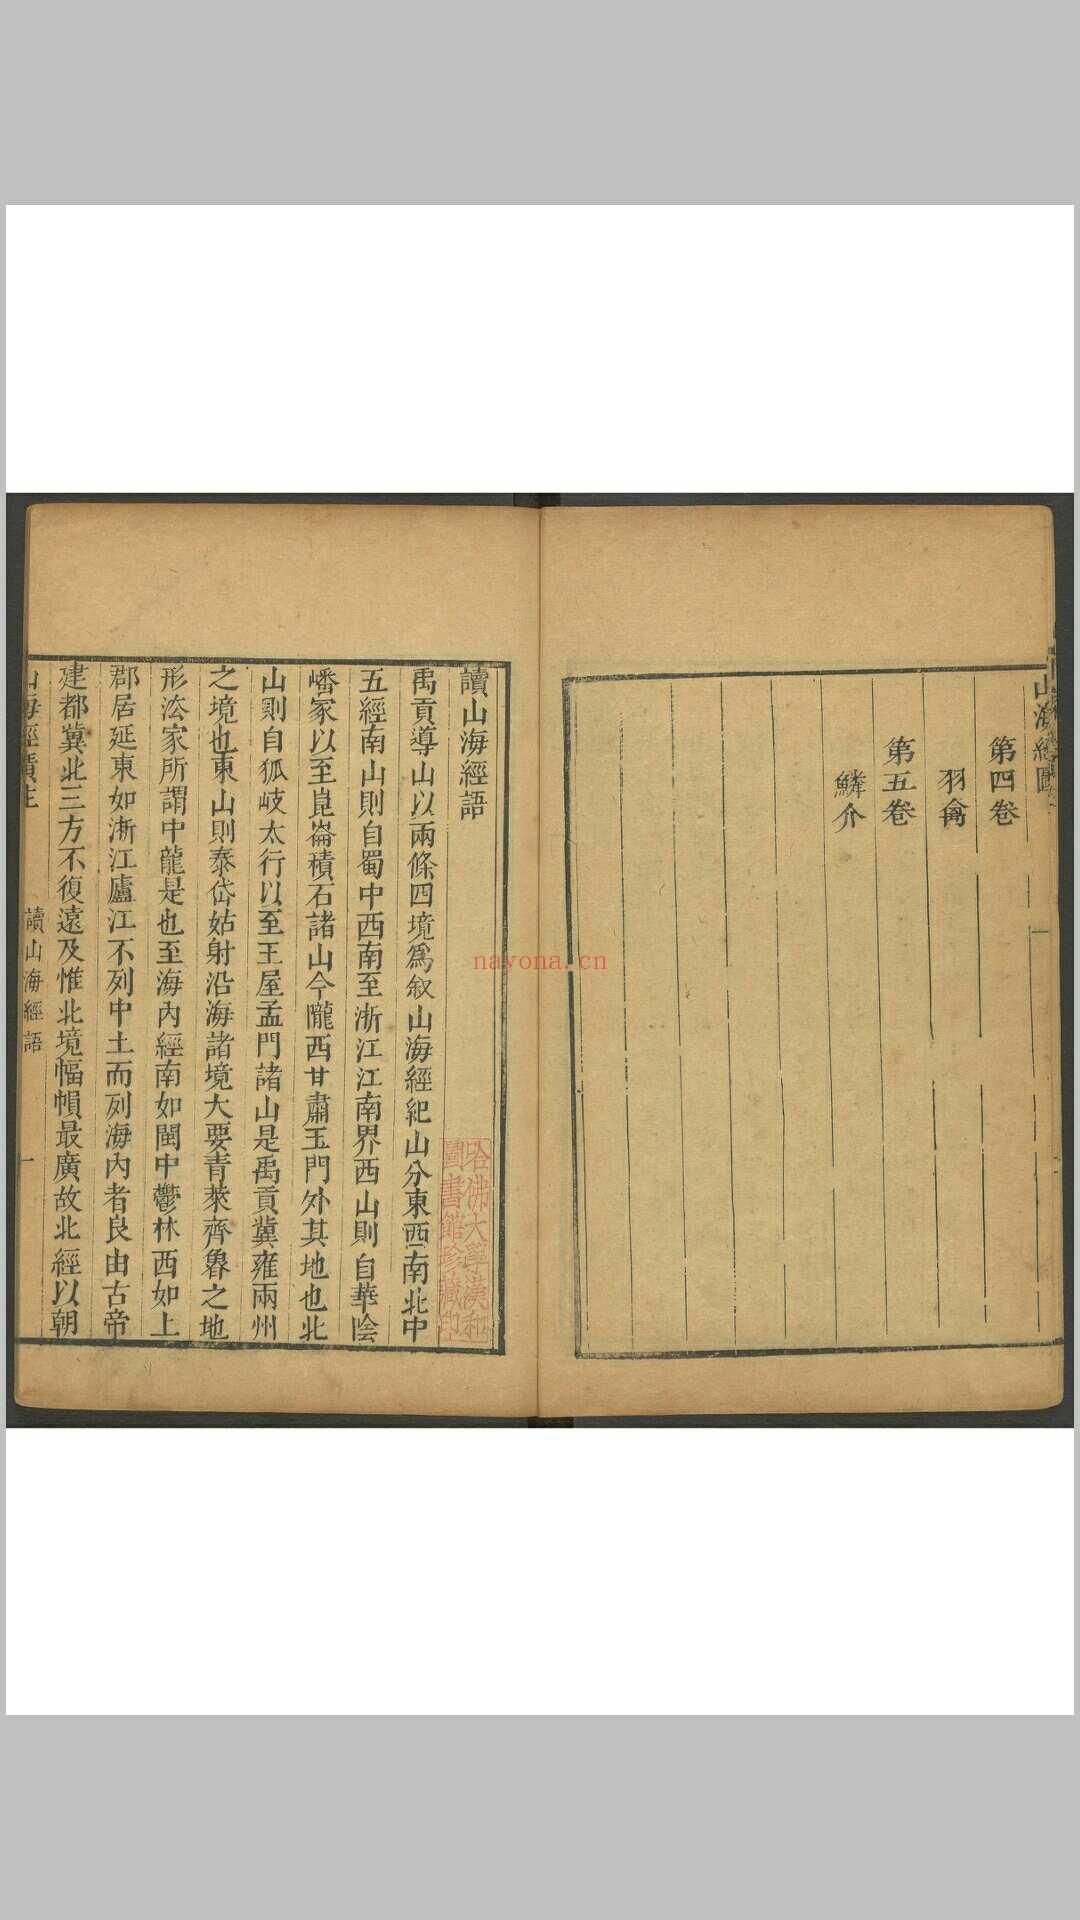 山海經圖
第四卷
羽禽
第五卷
鱗介
讀山海經語
禹貢導山以兩條四境爲叙山海經紀山分東西南北中
五經南山則自蜀中西南至浙江江南界西山則自華陰
嶓冢以至崑崙積石諸山今隴西甘肅玉門外其地也北
山則自狐岐太行以至王屋孟門諸山是禹貢冀雍兩州
之境也東山則泰岱姑射沿海諸境大要青萊齊魯之地
形法家所謂中龍是也至海內經南如閩中鬱林西如上
郡居延東如浙江廬江不列中土而列海內者良由古帝
建都冀北三方不復遠及惟北境幅幀最廣故北經以朝
山海經廣注
讀山海經語
一
哈佛大學漢和
圖書館珍藏印
nayona.cn